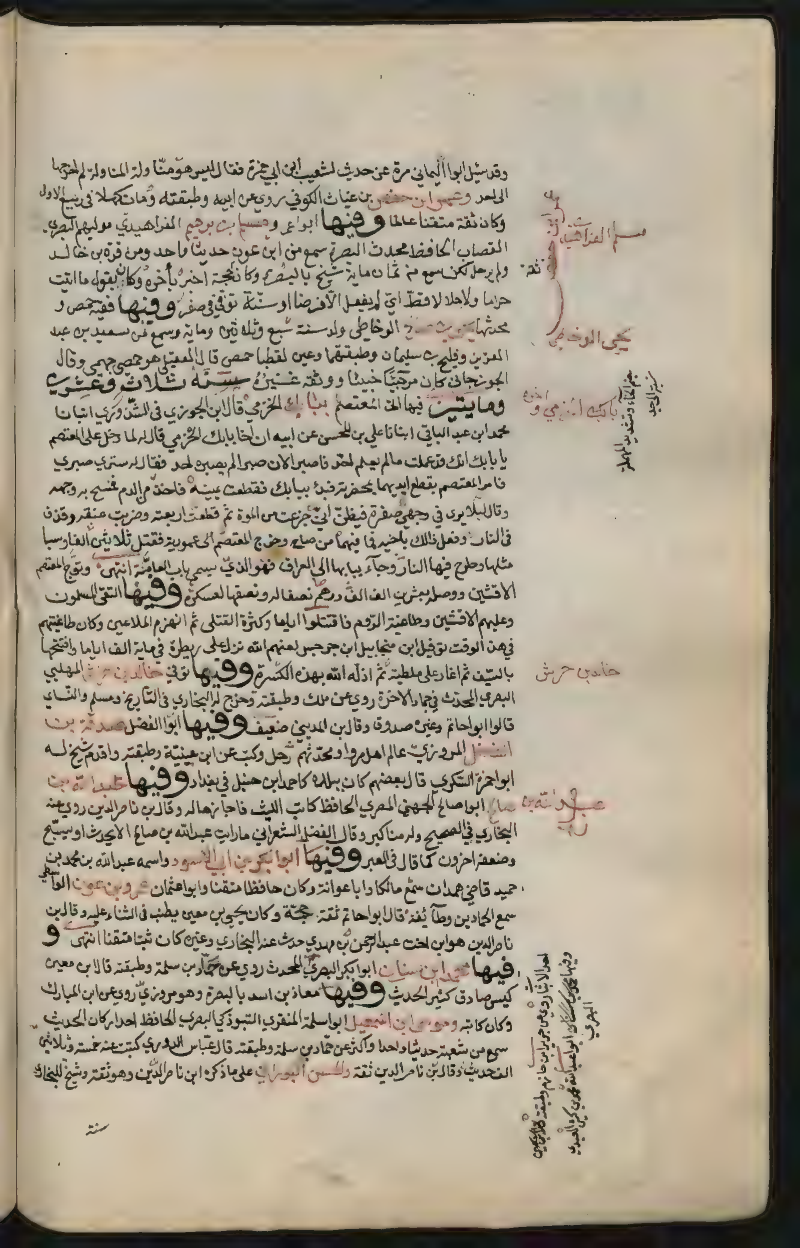 وقد سئل ابوا اليماني مرة عن حديث لشعيب ابن ابي حمزة فقال ليس هو منا ولة المناولة لم اخرجها
الى احد وعمر ابن حفص بن غياث الكوفي روى عن ابيه وطبقته ومات كهلا في ربيع الاول
وكان ثقة متقنا عالما وفيها ابو اعمر ومسلم بن ابرهيم الفراهيدي موليهم البصري
القصاب الحافظ محدث البصرة سمع من ابن عون حديثا واحد ومن قرة بن خالد
ولم يرحل لكن سمع من ثمان ماية شيخ بالبصرة وكان ثقة حجة اضر باخره وكان يقول ما اتيت
حراما ولا حلالا قط اي لم يفعل الا فرضا او سنة توفي في صفر وفيها فقيه حمص و
محدثها يحيى بن صالح الوخاظي ولد سنة سبع وثلاثين وماية وسمع من سعيد بن عبد
العزيز وفليح بن سليمان وطبقتهما وعين لقضا حمص قال العقيلي هو حمصي جهمي وقال
الجوزجاني كان مرجيا خبيثا ووثقه غيره سنة ثلاث وعشرين
ومايتين فيها اتى المعتصم ببابك الخرمي قال ابن الجوزي في الشذور اي انبانا
محمد ابن عبد الباقي انبانا علي بن المحسن عن ابيه ان اخا بابك الخرمي قال له لما دخل على المعتصم
يا بابك انك قد عملت ما لم يعمله احد فاصبر الان صبرا لم يصبره احد فقال له سترى صبري
فامر المعتصم بقطع ايديهما بحضرته فبدئ ببابك فقطعت يمينه فاخذ من الدم فمسح به وجهه
وقال ليلا يرى في وجهي صفرة فيظن اني جزعت من الموت ثم قطعت اربعته وضربت عنقه وقذف
في النار وفعل ذلك باخيه فما فيهما من صاح وخرج المعتصم الى عمورية فقتل ثلاثين الفا وسبا
مثلها وطرح فيها النار وجاء ببابها الى العراق فهو الذي يسمى باب العامة انتهى وتوج المعتصم
الافشين ووصله بعشرين الف الف درهم نصفها له ونصفها لعسكره وفيها التقى المسلمون
وعليهم الافشين وطاغية الروم فاقتتلوا اياما وكثرة القتلى ثم انهزم الملاعين وكان طاغيتهم
في هذا الوقت توفيل ابن ميخاييل ابن جرجس لعنهم الله نزل على زبطرة في ماية الف اياما وافتتحها
بالسيف ثم اغار على ملطية ثم اذله الله بهذه الكسرة وفيها توفي خالد بن خراش المهلبي
البصري المحدث في جماد الاخرة روى عن ملك وطبقته وخرج له البخاري في التاريخ ومسلم والنساي
قالوا ابوا حاتم وغيره صدوق وقال بن المديني ضعيف وفيها ابوا الفضل صدقة بن
الفضل المروزي عالم اهل مروا ومحدثهم رحل وكتب عن ابن عيينة وطبقته واقدم شيخ له
ابوا حمزة السكري قال بعضهم كان ببلده كاحمد ابن حنبل في بغداد وفيها عبد الله بن
صالح ابوا صالح الجهني المصري الحافظ كاتب الليث وقال بن ناصر الدين روى عنه
البخاري في الصحيح وله مناكير وقال الفضل الشعراني ما رايت عبد الله بن صالح الا يحدث او يسبح
وضعفه اخرون كما قال في العبر وفيها ابوا بكر بن ابي الاسود واسمه عبد الله بن محمد بن
حميد قاضي همدان سمع مالكا وابا عوانة وكان حافظا متقنا وابوا عثمان عمرو بن عون الواسطي
سمع الحمادين وطائفة قال ابوا حاتم ثقة حجة وكان يحيى بن معين يطنب في الثناء عليه وقال بن
ناصر الدين هو ابن اخت عبد الرحمن بن مهدي حدث عنه البخاري وغيره كان ثبتا متقنا انتهى و
فيها محمد ابن سنان ابوا بكر البصري المحدث روى عن حماد بن سلمة وطبقته قال ابن معين
كيس صادق كثير الحديث وفيها معاذ بن اسد بالبصرة وهو مروزي روى عن ابن المبارك
وكان كاتبه وموسى ابن اسمعيل ابوا سلمة المنقري التبوذكي البصري الحافظ احد اركان الحديث
سمع من شعبة حديثا واحدا واكثر عن حماد بن سلمة وطبقته قال عباس الدوري كتبت عنه خمسة وثلاثين
الف حديث وقال بن ناصر الدين ثقة والحسن البوراني على ما ذكره ابن ناصر الدين وهو ثقة وشيخ للبخاري
سنة
مسلم الفراهيدي
ثقة
يحيى الوخاظي
بابك الخرمي
خالد بن خراش
عبد الله بن